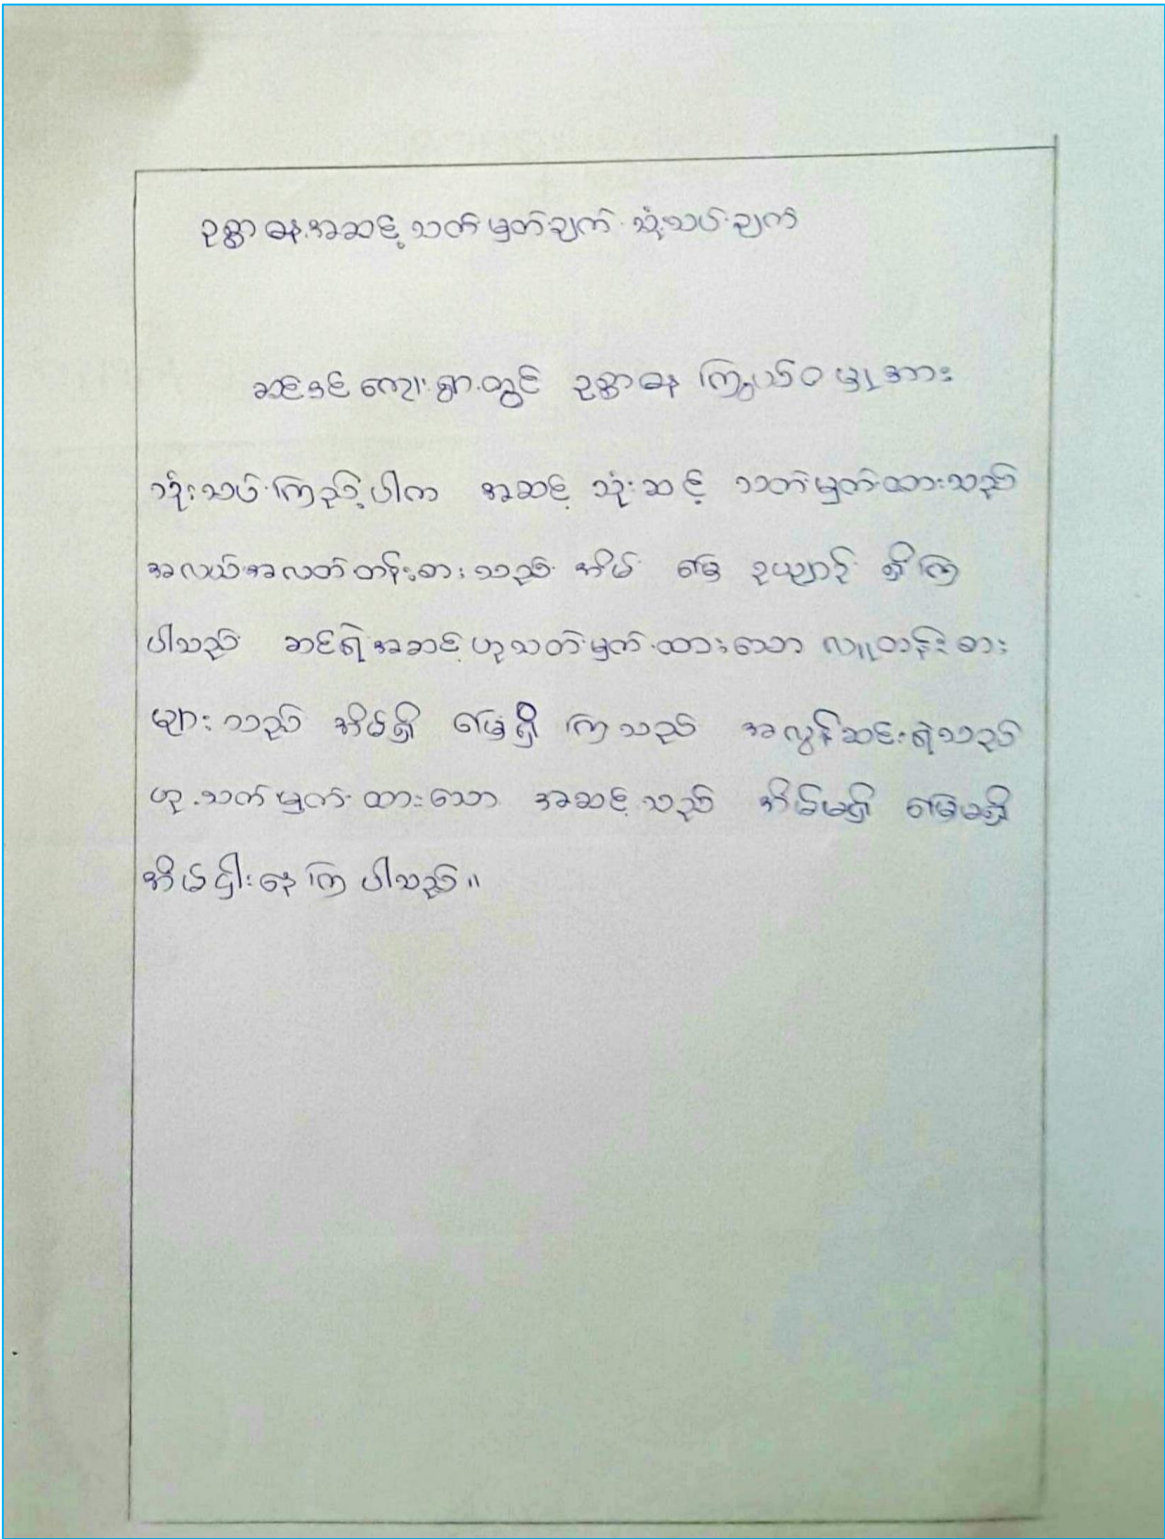 ဥစ္စာဓန အဆင့် သတ်မှတ်ချက် သုံးသပ်ချက်
ဆင်ခင် ကျေးရွာတွင် ဥစ္စာဓန ကြွယ်ဝ မှုအား
သုံးသပ်ကြည့်ပါက အဆင့် သုံးဆင့် သတ်မှတ်ထားသည်
အလယ်အလတ်တန်းစားသည် အိမ် မြေ ဥယျာဉ် ရှိကြ
ပါသည် ဆင်ရဲအဆင့်ဟုသတ်မှတ်ထားသော လူတန်းစား
များသည် အိမ်ရှိ မြေရှိ ကြသည် အလွန်ဆင်းရဲသည်
ဟု သတ်မှတ်ထားသော အဆင့်သည် အိမ်မရှိ မြေမရှိ
အိမ်ငှါးနေကြပါသည်။